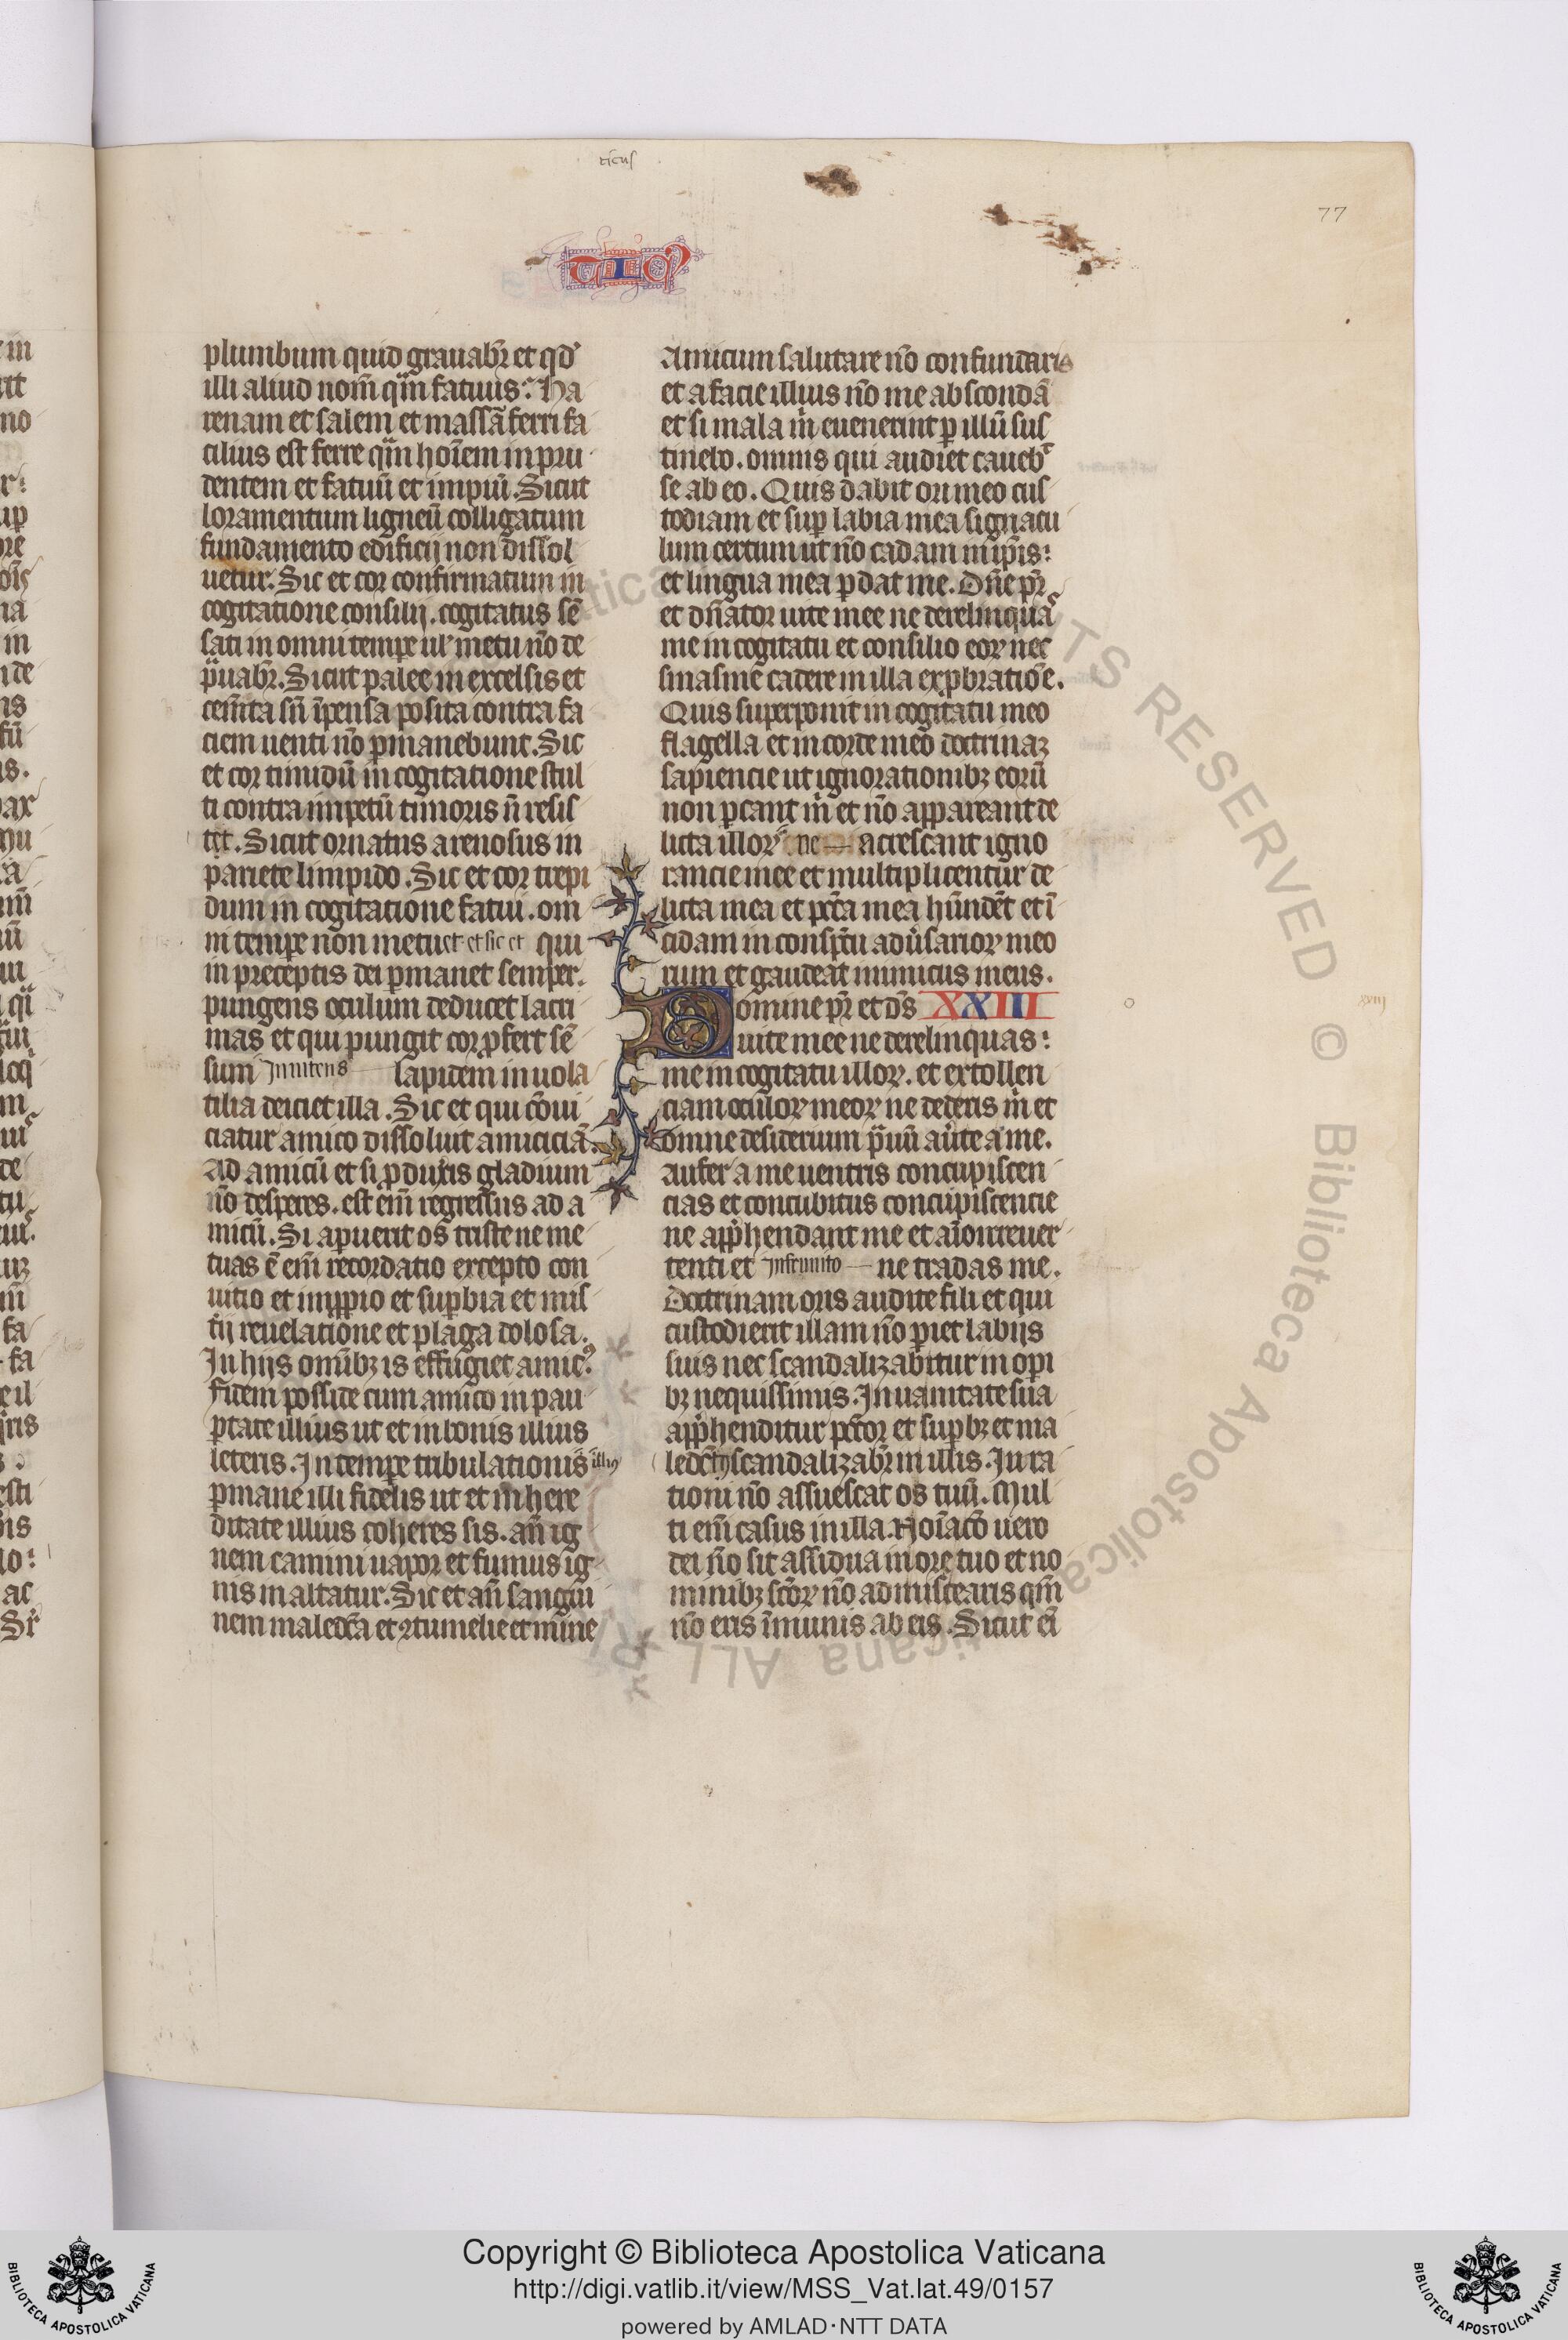 ticus
77
TICꝰ
plumbum quid grauabr̄ et qd̓
illi aliud nom̄ qͣm fatuus? Ha
renam et salem et massā ferri fa
cilius est ferre qͣm hoīem inpru
dentem et fatuū et impiū. Sicut
loramentum ligneū colligatum
fundamento edificij non dissol
uetur. Sic et cor confirmatum in
cogitatione consilij. cogitatus sē
sati in omni temꝑe ul̓ metu nō de
pͣuabr̄. Sicut palee in excelsis et
cem̄ta sn̄ īpensa posita contra fa
ciem uenti nō ꝑmanebunt. Sic
et cor timidū in cogitatione stul
ti contra impetū timoris n̄ resis
tet. Sicut ornatus arenosus in
pariete limpido. Sic et cor trepi
dum in cogitatione fatui. om
ni temꝑe non metuet et sic et qui
in preceptis dei ꝑmanet semper.
pungens oculum deducet lacri
mas et qui pungit cor ꝓfert sē
sum Inmitens lapidem in uola
tilia deiciet illa. Sic et qui cōui
ciatur amico dissoluit amiciciā.
Ad amicū et si ꝓduxͥis gladium
nō desꝑes. est em̄ regressus ad a
micū. Si aꝑuerit os triste ne me
tuas ē em̄ recordatio excepto con
uitio et impꝓio et suꝑbia et mis
t̓ij reuelatione et plaga dolosa.
In hijs omībꝫ is effugiet amicꝰ.
Fidem posside cum amico in pau
ꝑtate illius ut et in bonis illius
leteris. In temꝑe tribulationis illiꝰ
ꝑmane illi fidelis ut et in here
ditate illius coheres sis. an̄ ig
nem camini uapor et fumus ig
nis inaltatur. Sic et an̄ sangui
nem maledc̄a et ꝯtumelie et mine
Amicum salutare nō confundaris
et a facie illius nō me abscondā
et si mala m̓ euenerint ꝑ illū sus
tinebo. omnis qui audiet caueb̓
se ab eo. Quis dabit ori meo cus
todiam et suꝑ labia mea signacu
lum certum ut nō cadam in ip̄is:
et lingua mea ꝑdat me. Dn̄e pr̄
et dn̄ator uite mee ne derelinquas
me in cogitatu et consilio eoꝝ nec
sinas me cadere in illa exꝓbratiōe.
Quis superponit in cogitatu meo
flagella et in corde meo doctrinaꝫ
sapiencie ut ignorationibꝫ eorū
non ꝑcant m̓ et nō appareant de
licta illoꝝ. ne acrescant igno
rancie mee et multiplicentur de
licta mea et pctā mea hūndēt et ī
cidam in conspc̄tu adūsarioꝝ meo
rum et gaudeat inimicus meus.
Domine pr̄ et ds̄ XXIII
uite mee ne derelinquas:
me in cogitatu illoꝝ. et extollen
ciam oculoꝝ meoꝝ ne dederis m̓ et
omne desiderium pͣuū aūte a me.
aufer a me uentris concupiscen
cias et concubitus concupiscencie
ne appͤhendant me et aīo irreuer
tenti et Infrunito ne tradas me.
Doctrinam oris audite fili et qui
custodierit illam nō ꝑiet labijs
suis nec scandalizabitur in oꝑi
bꝫ nequissimis. In uanitate sua
appͤhenditur pctōr et suꝑbꝫ et ma
ledc̄ꝰ scandalizabr̄ in illis. Iura
tioni nō assuescat os tuū. Mul
ti em̄ casus in illa. Noīacō uero
dei nō sit assidua in ore tuo et no
minibꝫ sc̄oꝝ nō admiscearis qm̄
nō eris īmunis ab eis. Sicut ei
xviii
Copyright © Biblioteca Apostolica Vaticana
http://digi.vatlib.it/view/MSS_Vat.lat.49/0157
powered by AMLAD·NTT DATA